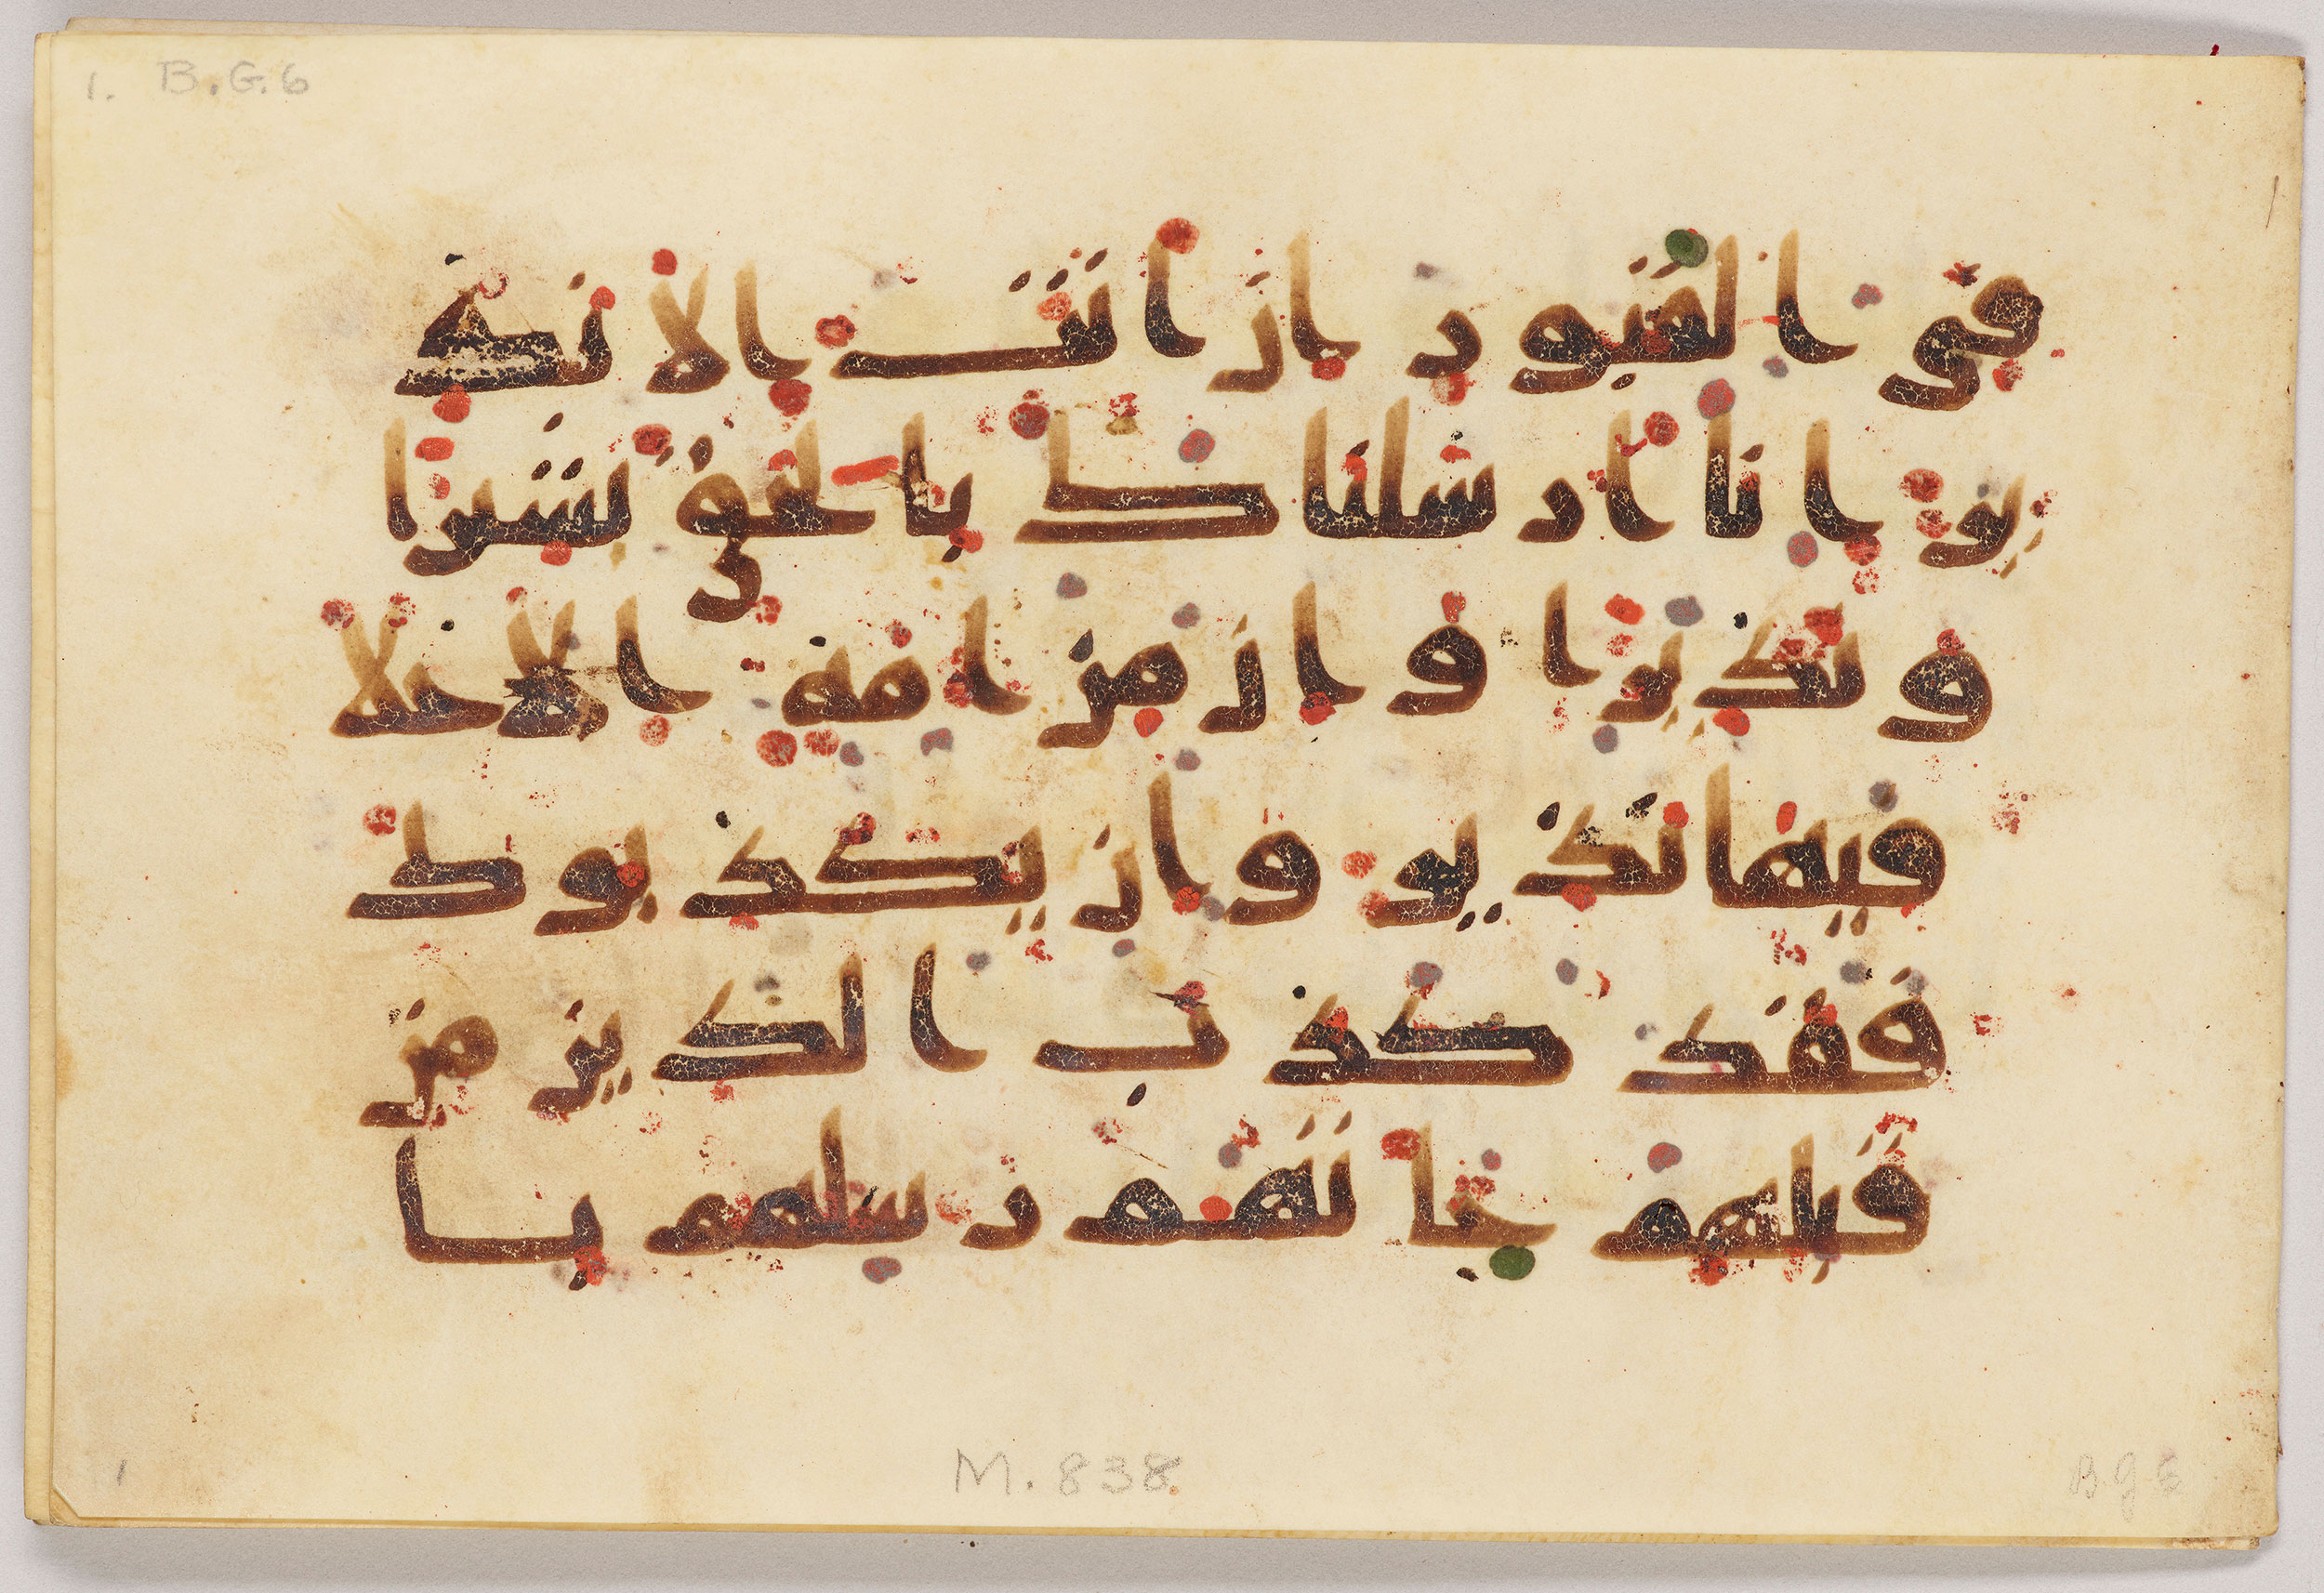 1. B.G.6
1
في القبور ان انت الا نذ
ير انا ارسلناك بالحق بشيرا
و نذيرا و ان من امة الا خلا
فيها نذير و ان يكذبوك
فقد كذب الذين من
قبلهم جاتهم رسلهم با
1
M. 838.
B g 6